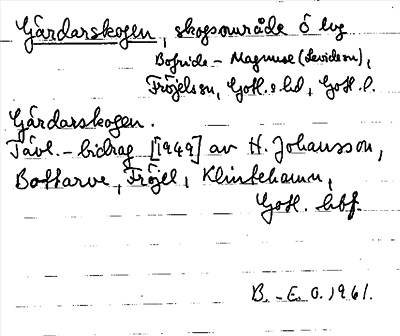 Gårdarskogen, skogsområde Ö lvg
Bofride - Magnuse (Levideon),
Fröjel sn, Gotl. s. hd, Gotl. l.
Gårdarskogen.
Tävl.-bidrag [1949] av H. Johansson,
Bottarve, Fröjel, Klintehamn,
Gotl. hbf.
B.-E. O. 1961.